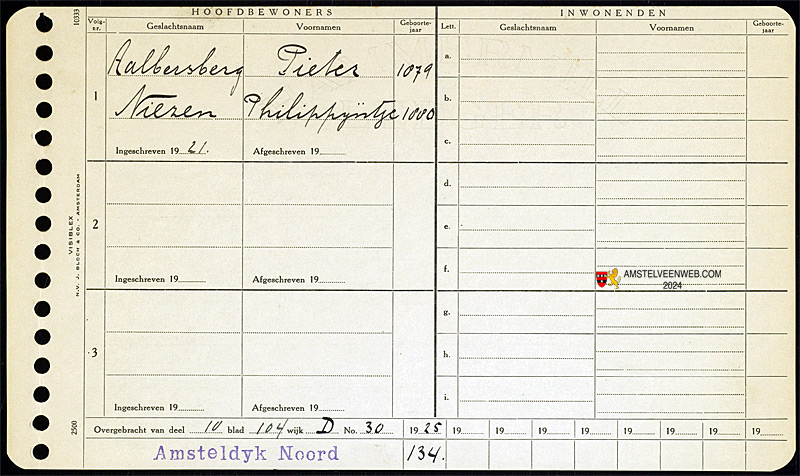 HOOFDBEWONERS INWONENDEN
Volg-nr. Geslachtsnaam Voornamen Geboorte-jaar Lett. Geslachtsnaam Voornamen Geboorte-jaar
1 Aalbersberg Pieter 1879
Niezen Philippijntje 1880
Ingeschreven 19 21. Afgeschreven 19
2
Ingeschreven 19 Afgeschreven 19
3
Ingeschreven 19 Afgeschreven 19
a.
b.
c.
d.
e.
f.
g.
h.
i.
AMSTELVEENWEB.COM
2024
Overgebracht van deel 10 blad 104 wijk D No. 30 1925 19 19 19 19 19 19 19 19
Amsteldyk Noord 134.
10333
VISIBLEX
N.V. J. BLOCH & CO. - AMSTERDAM
2500